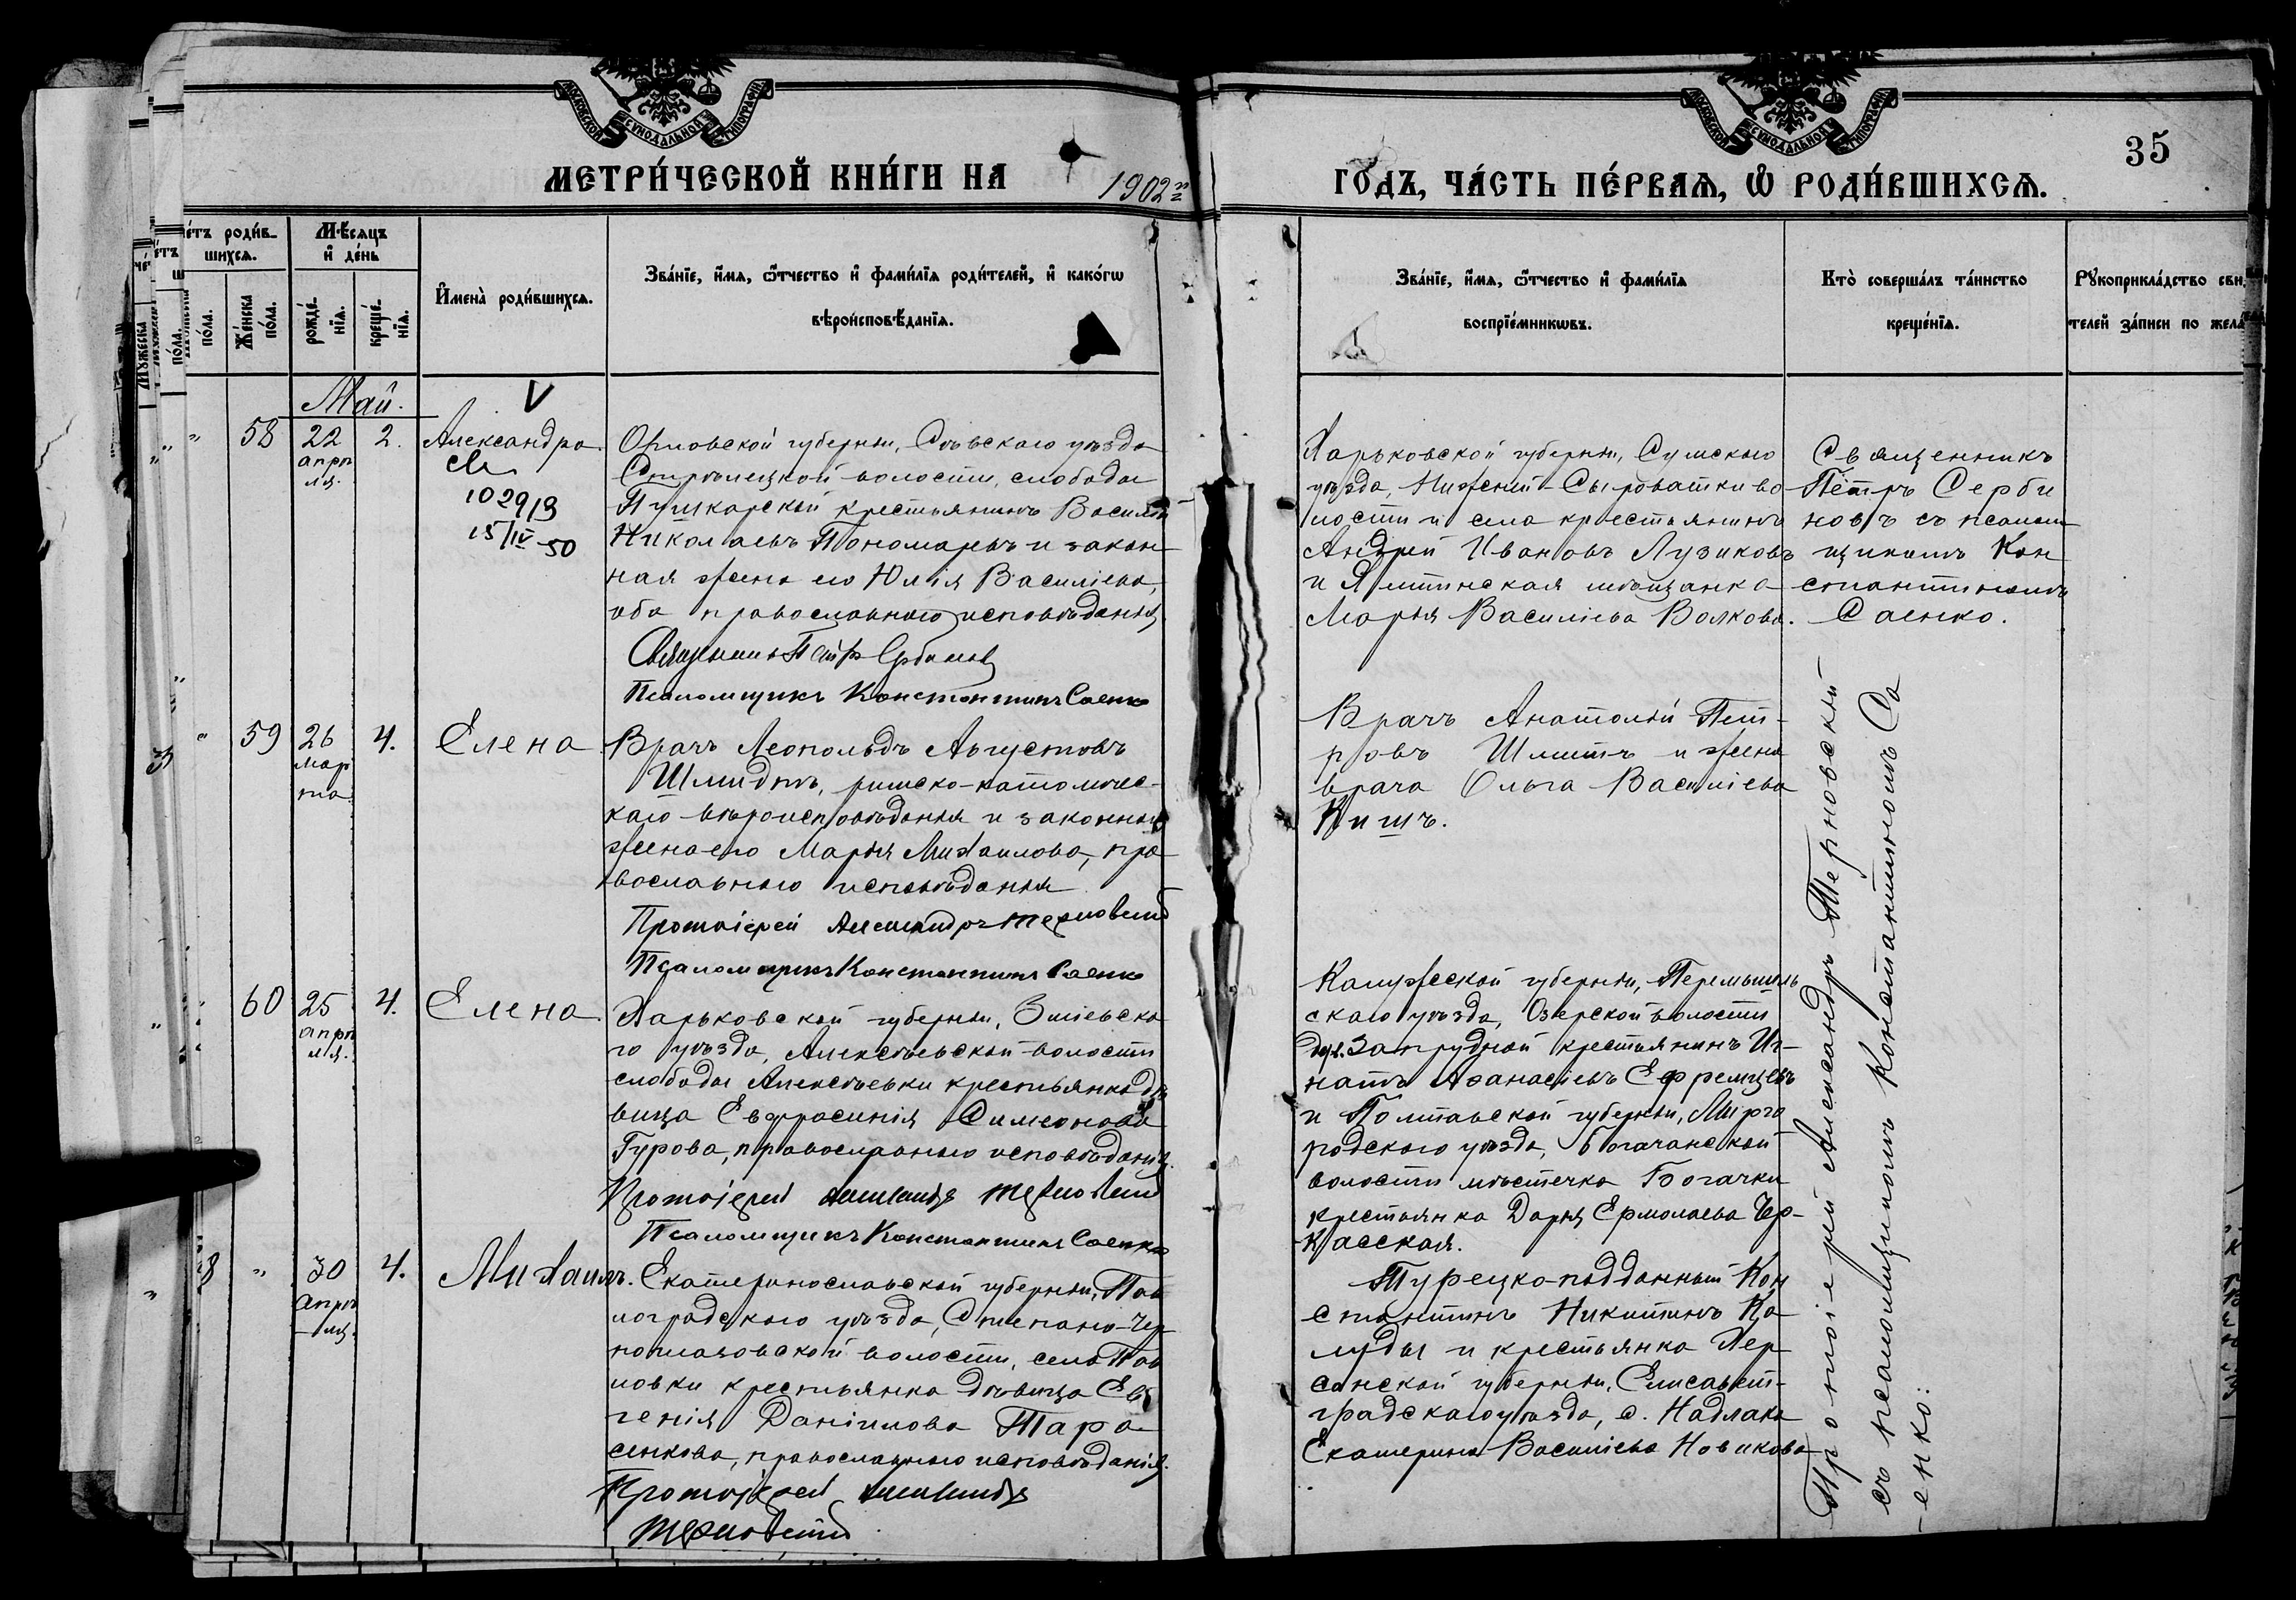 МОСКОВСКОЙ СѴНОДАЛЬНОЙ ТИПОГРАФІИ
МЕТРИ́ЧЕСКОЙ КНИ́ГИ НА 1902й
МОСКОВСКОЙ СѴНОДАЛЬНОЙ ТИПОГРАФІИ
35
ГО́ДЪ, ЧА́СТЬ ПЕ́РВАЯ, Ѡ РОДИ́ВШИХСЯ.
Мѣсяцъ
и де́нь
роди́в-
шихся.
по́ла.
Же́нска
по́ла.
рожде́-
нїя.
креще́-
нїя.
Имена̀ роди́вшихся.
Зва́нїе, и́мя, ѻ́тчество и фами́лїя роди́телей, и како́гѡ
вѣроисповѣ́данїя.
Зва́нїе, и́мя, ѻ́тчество и фами́лїя
воспрїе́мникѡвъ.
Кто̀ соверша́лъ та́инство
креще́нїя.
Рꙋкоприкла́дство сви
телей за́писи по жела
Май.
V
" 58 22 апрѣля. 2. Александра
102913
15/IV-50
Орловской губерніи, Сѣвскаго уѣзда
Стрѣлецкой волости, слободы
Пушкарской крестьянинъ Василій
Николаевъ Пономаревъ и закон
ная жена его Юлія Василіева,
оба православнаго исповѣданія
Священникъ Петръ Сербиновъ
Псаломщикъ Константинъ Саенко
Харьковской губерніи, Сумскаго
уѣзда, Нижней-Сыроватки во
лости и села крестьянинъ
Андрей Ивановъ Лузиковъ
и Ялтинская мѣщанка
Марія Василіева Волкова.
Священникъ
Петръ Серби
новъ съ псалом
щикомъ Кон
стантиномъ
Саенко.
" 59 26 марта 4. Елена
Врачъ Леопольдъ Августовъ
Шмидтъ, римско-католичес-
каго вѣроисповѣданія и законная
жена его Марія Михаилова, пра
вославнаго исповѣданія
Протоіерей Александръ Терновскій
Псаломщикъ Константинъ Саенко
Врачъ Анатолій Пет-
ровъ Шмитъ и жена
врача Ольга Василіева
Кишъ.
" 60 25 апрѣля. 4. Елена
Харьковской губерніи, Зміевска
го уѣзда, Алексѣевской волости
слободы Алексѣевки крестьянка дѣ
вица Евфросинія Симеонова
Гурова, православнаго исповѣданія.
Протоіерей Александръ Терновскій
Псаломщикъ Константинъ Саенко
Калужской губерніи, Перемышль
скаго уѣзда, Озерской волости
дер. Запрудной крестьянинъ Иг-
натъ Аѳанасіевъ Ефремцевъ
и Полтавской губерніи, Мирго
родскаго уѣзда, Богачанской
волости мѣстечка Богачки
крестьянка Дарія Ермолаева Чер-
касская.
8 " 30 апрѣля. 4. Михаилъ.
Екатеринославской губерніи, Пав
лоградскаго уѣзда, Степано-
волости, села Пав
ловки крестьянка дѣвица Ев
генія Даніилова Тара
сенкова, православнаго исповѣданія.
Протоіерей Александръ
Терновскій
Турецко-подданный Кон
стантинъ Никитинъ Ка
луды и крестьянка Хер
сонской губерніи, Елисавет-
градскаго уѣзда, с. Надлака
Екатерина Василіева Новикова
Протоіерей Александръ Терновскій
съ псаломщикомъ Константиномъ Са
-енко.